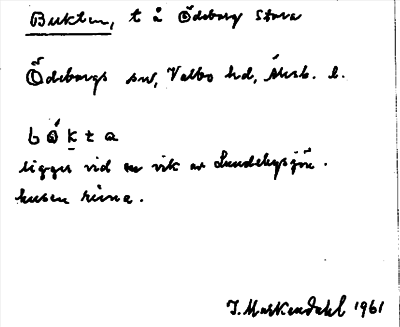 Bukten, t å Ödeborg Stora
Ödeborgs sn, Valbo hd, Älvsb. l.
b ó k t a
ligger vid en vik av Lundebysjön.
husen rivna.
J. Markendahl 1961